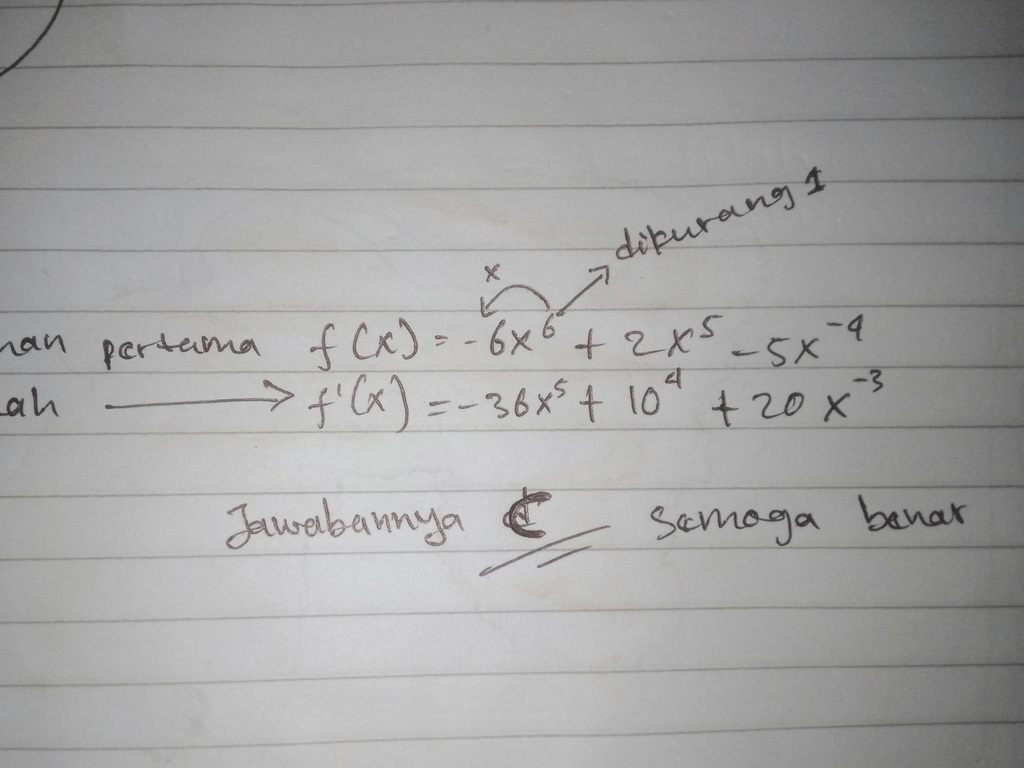 dikurang 1
x
nan pertama f(x) = -6x⁶ + 2x⁵ - 5x⁻⁴
lah → f'(x) = -36x⁵ + 10⁴ + 20x⁻³
Jawabannya C semoga benar